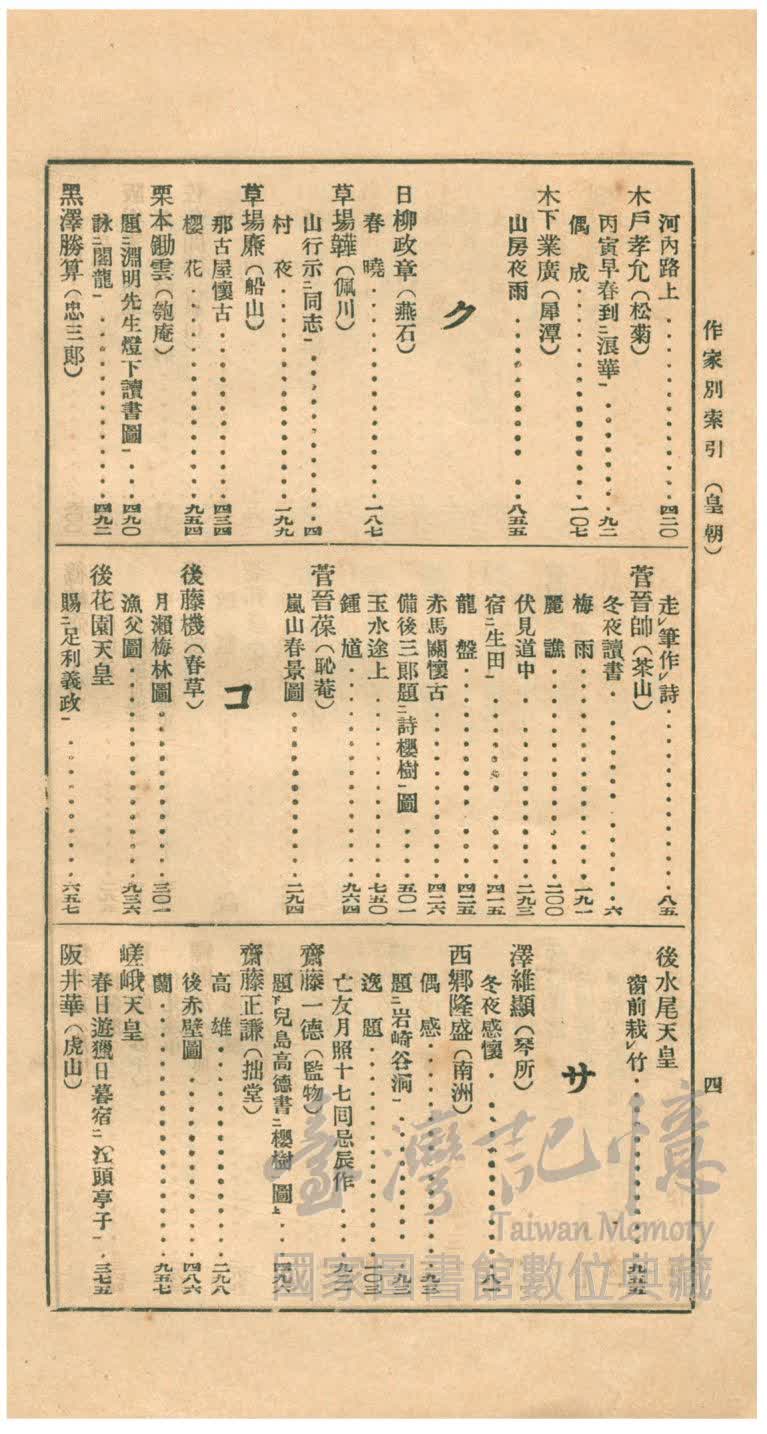 作家別索引（皇朝）
四
河內路上・・・・・・四二〇
木戶孝允（松菊）
丙寅早春到二浪華一・・・・・・九二
偶成・・・・・・一〇七
木下業廣（犀潭）
山房夜雨・・・・・・八五五
ク
日柳政章（燕石）
春曉・・・・・・一八七
草場韡（佩川）
山行示二同志一・・・・・・四
村夜・・・・・・一九九
草場廉（船山）
那古屋懷古・・・・・・四三四
櫻花・・・・・・九五四
栗本鋤雲（匏庵）
題二淵明先生燈下讀書圖一・・・・・・四九〇
詠二閣龍一・・・・・・四九二
黑澤勝算（忠三郎）
走レ筆作レ詩・・・・・・八五
菅晉帥（茶山）
冬夜讀書・・・・・・六
梅雨・・・・・・一九一
麗譙・・・・・・二〇〇
伏見道中・・・・・・二九三
宿二生田一・・・・・・四一五
龍盤・・・・・・四二五
赤馬關懷古・・・・・・四二六
備後三郎題二詩櫻樹一圖・・・・・・五〇一
玉水途上・・・・・・七五〇
鍾馗・・・・・・九六四
菅晉葆（恥菴）
嵐山春景圖・・・・・・二九四
コ
後藤機（春草）
月瀨梅林圖・・・・・・三〇一
漁父圖・・・・・・九三六
後花園天皇
賜二足利義政一・・・・・・六五七
後水尾天皇
窗前栽レ竹・・・・・・九五五
サ
澤維顯（琴所）
冬夜感懷・・・・・・八一
西鄉隆盛（南洲）
偶感・・・・・・九三
題二岩崎谷洞一・・・・・・九三
逸題・・・・・・一〇三
亡友月照十七回忌辰作・・・・・・九二
齋藤一德（監物）
題下兒島高德書二櫻樹一圖上・・・・・・四九六
齋藤正謙（拙堂）
高雄・・・・・・二九八
後赤壁圖・・・・・・四八六
蘭・・・・・・九五七
嵯峨天皇
春日遊獵日暮宿二江頭亭子一・・・・・・三七五
阪井華（虎山）
臺灣記憶
Taiwan Memory
國家圖書館數位典藏